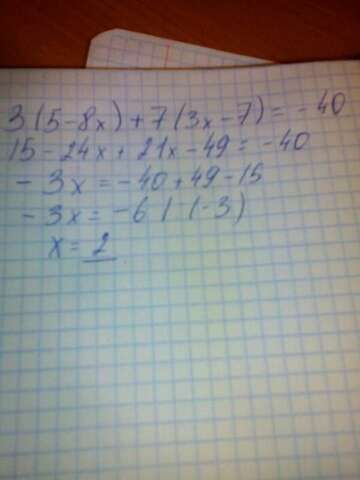 3(5-8x)+7(3x-7)=-40
15-24x+21x-49=-40
-3x=-40+49-15
-3x=-6 | (-3)
x=2